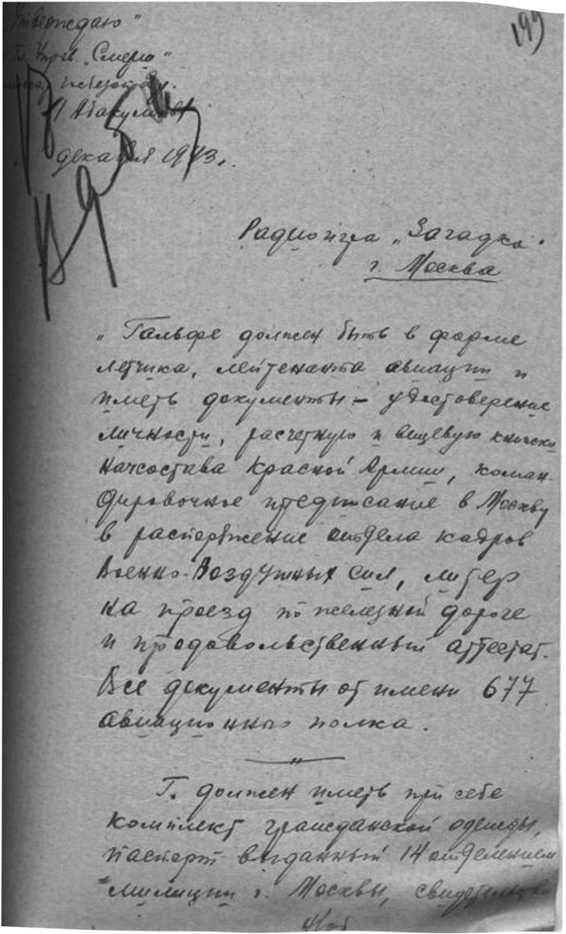 199
„Утверждаю"
Упр. „Смерш"
Абакумов
декабря 1943 г.
Радиоигра „Загадка".
г. Москва
„Гальфе должен быть в форме
летчика, лейтенанта авиации и
иметь документы – удостоверение
личности, расчетную и вещевую книжки
начсостава Красной Армии, коман-
дировочное предписание в Москву
в распоряжение отдела кадров
Военно-Воздушных сил, литер
на проезд по железной дороге
и продовольственный аттестат.
Все документы от имени 677
авиационного полка.
Г. должен иметь при себе
комплект гражданской одежды,
паспорт выданный 14 отделением
милиции г. Москвы, свидетельство